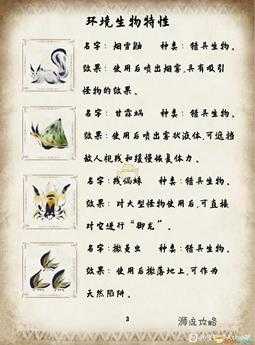 环境生物特性
名字：烟雪鼬 种类：猎具生物。
效果：使用后喷出烟雾，具有吸引
怪物的效果。
名字：甘露蜗 种类：猎具生物。
效果：使用后喷出雾状液体，可遮挡
敌人视线和缓慢恢复体力。
名字：线偶蛛 种类：猎具生物。
效果：对大型怪物使用后，可直接
对它进行“御龙”。
名字：撒菱虫 种类：猎具生物。
效果：使用后撒落地上，可作为
天然陷阱。
3
游侠攻略